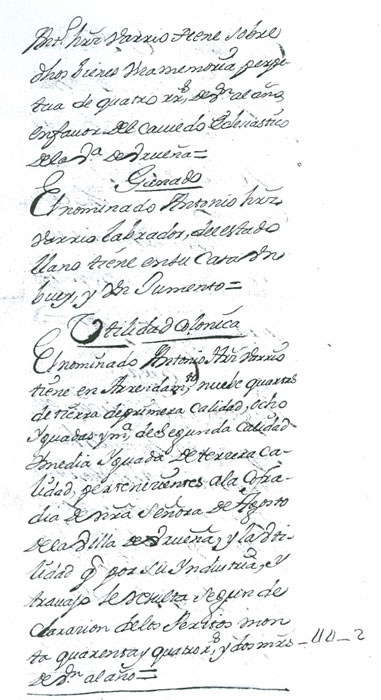 Ant.º hrz Varrio tiene sobre
dhos vienes una memoria perpe-
tua de quatro rr.s de Vn al año,
en favor del cavildo Eclesiastico
de la V.a de Dueña=
Ganado
El nominado Antonio hrz
Varrio labrador, del estado
llano tiene en su Casa Un
buey, y Un Jumento=
Utilidad Colonica
El nominado Antonio Hrz Varrio
tiene en Arrendam.to nueve quartas
de tierra de primera calidad, ocho
Yguadas y m.a de Segunda Calidad
media Yguada de tercera Ca-
lidad, pertenecientes a la Cofra-
dia de nra Señora de Agosto
de la Villa de Dueña, y la Uti-
lidad q por su Industria, y
travajo le resulta segun de
claracion de los Peritos mon
ta quarenta y quatro r.s, y dos mrs - 44 - 2
de Vn al año=